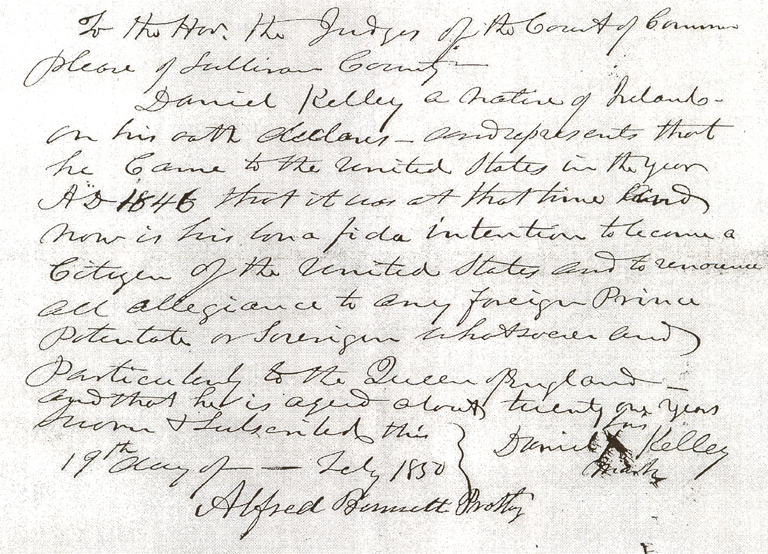 To the Hon. the Judges of the Court of Common
please of Sullivan County —
Daniel Kelley a native of Ireland -
on his oath declares - and represents that
he Came to the United States in the year
AD 1846 that it was at that time and
now is his bona fida intention to become a
Citizen of the United States and to renounce
all allegiance to any foreign Prince
Potentate or Sovreign whatsoever and
Particularly to the Queen of England —
and that he is aged about twenty one years
Sworn & Subscribed this
19th day of — July 1850
his
Daniel X Kelley
mark
Alfred Bennett Prothy